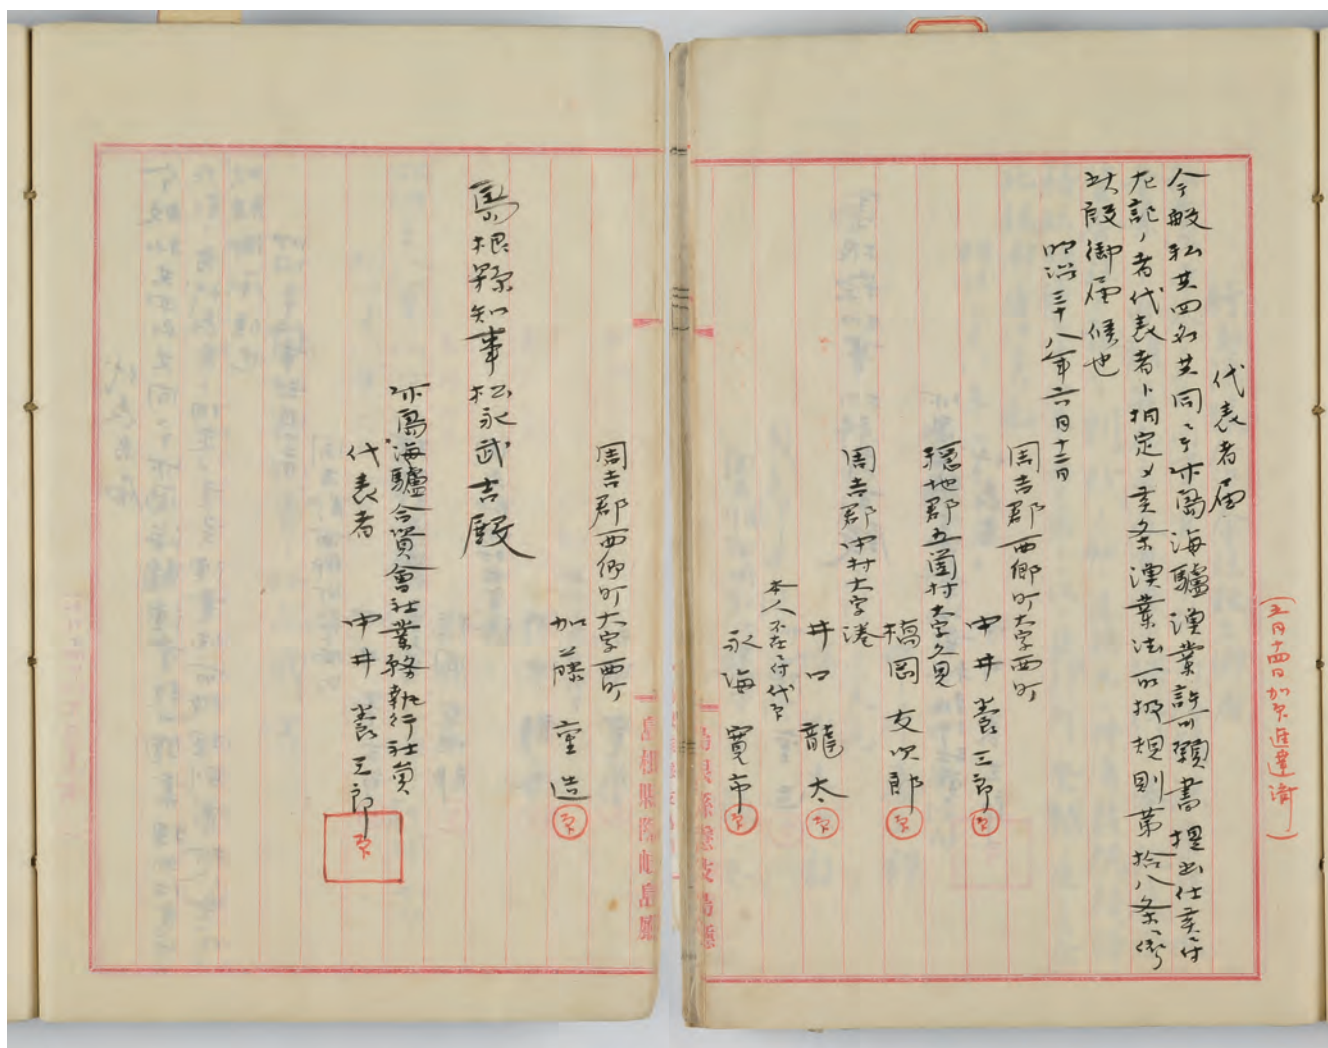 (五月十四日加印進達済)
代表者届
今般私共四名共同ニテ竹島海驢漁業許可願書提出仕候ニ付
左記ノ者代表者ト相定メ候条漁業法取扱規則第拾八条ニ依リ
此段御届候也
明治三十八年六月十二日
周吉郡西郷町大字西町
中井養三郎 印
穏地郡五箇村大字久見
橋岡友次郎 印
周吉郡中村大字湊
井口龍太 印
本人不在ニ付代印
永海寛市 印
周吉郡西郷町大字西町
加藤重造 印
島根縣知事松永武吉殿
竹島海驢合資會社業務執行社員
代表者 中井養三郎 印
島根縣隠岐島廳